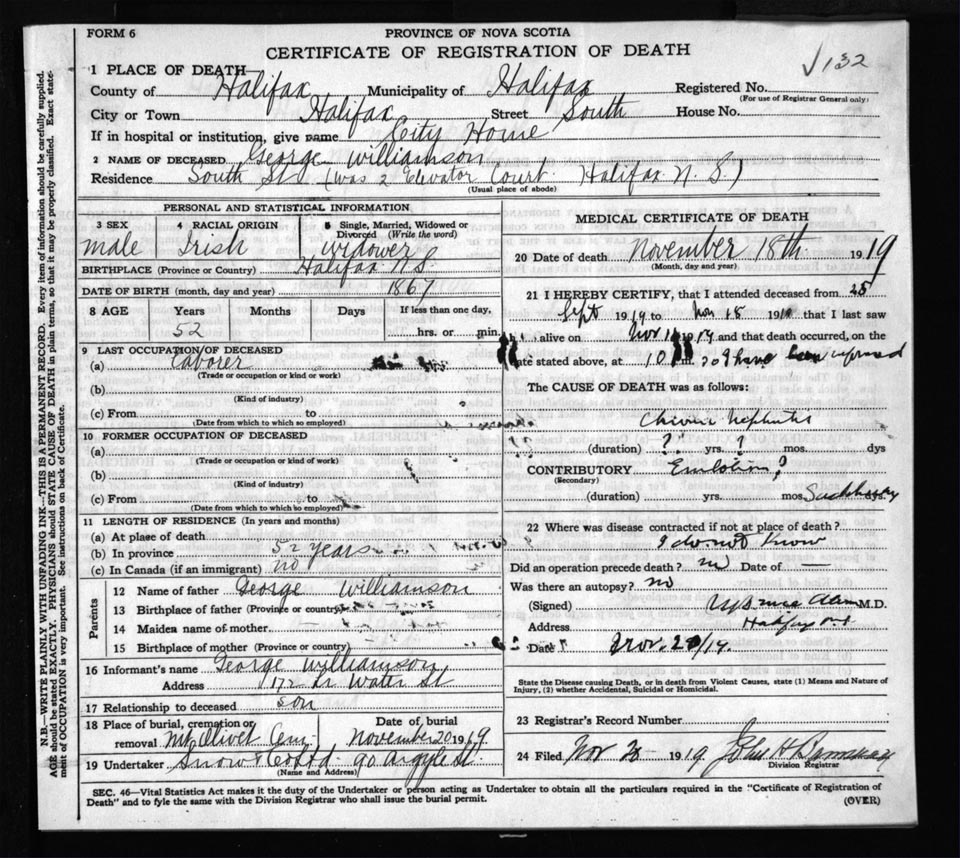 FORM 6
PROVINCE OF NOVA SCOTIA
CERTIFICATE OF REGISTRATION OF DEATH
√132
1 PLACE OF DEATH
County of Halifax Municipality of Halifax Registered No.
(For use of Registrar General only)
City or Town Halifax Street South House No.
If in hospital or institution, give name City Home
2 NAME OF DECEASED George Williamson
Residence South St (was 2 Elevator Court. Halifax N.S.)
(Usual place of abode)
PERSONAL AND STATISTICAL INFORMATION
3 SEX 4 RACIAL ORIGIN 5 Single, Married, Widowed or Divorced (Write the word)
male Irish widower
BIRTHPLACE (Province or Country) Halifax N.S.
DATE OF BIRTH (month, day and year) 1867
8 AGE Years Months Days If less than one day,
52 hrs. or min.
9 LAST OCCUPATION OF DECEASED
(a) Laborer
(Trade or occupation or kind or work)
(b)
(Kind of industry)
(c) From to
(Date from which to which so employed)
10 FORMER OCCUPATION OF DECEASED
(a)
(Trade or occupation or kind of work)
(b)
(Kind of industry)
(c) From to
(Date from which to which so employed)
11 LENGTH OF RESIDENCE (In years and months)
(a) At place of death
(b) In province 52 years
(c) In Canada (if an immigrant) no
Parents
12 Name of father George Williamson
13 Birthplace of father (Province or country)
14 Maiden name of mother
15 Birthplace of mother (Province or country)
16 Informant's name George Williamson
Address 172 Water St
17 Relationship to deceased son
18 Place of burial, cremation or removal Mt Olivet Cem Date of burial November 20 1919
19 Undertaker Snow 90 Argyle St.
(Name and Address)
MEDICAL CERTIFICATE OF DEATH
20 Date of death November 18th 1919
(Month, day and year)
21 I HEREBY CERTIFY, that I attended deceased from 25
Sept 1919 to Nov 18 191 that I last saw
alive on Nov 1919 and that death occurred, on the
date stated above, at 10 20 I have been informed
The CAUSE OF DEATH was as follows:
Chronic Nephritis
(duration) ? yrs. ? mos. dys
CONTRIBUTORY Embolism?
(Secondary)
(duration) yrs. mos. dys.
22 Where was disease contracted if not at place of death?
I do not know
Did an operation precede death? no Date of —
Was there an autopsy? no
(Signed) M.D.
Address Halifax
Date Nov. 20/19.
State the Disease causing Death, or in death from Violent Causes, state (1) Means and Nature of
Injury, (2) whether Accidental, Suicidal or Homicidal.
23 Registrar's Record Number
24 Filed Nov 1919 John H
Division Registrar
SEC. 46—Vital Statistics Act makes it the duty of the Undertaker or person acting as Undertaker to obtain all the particulars required in the "Certificate of Registration of
Death" and to fyle the same with the Division Registrar who shall issue the burial permit.
(OVER)
N.B.—WRITE PLAINLY WITH UNFADING INK—THIS IS A PERMANENT RECORD. Every item of information should be carefully supplied.
AGE should be stated EXACTLY. PHYSICIANS should STATE CAUSE OF DEATH in plain terms, so that it may be properly classified. Exact state-
ment of OCCUPATION is very important. See instructions on back of Certificate.